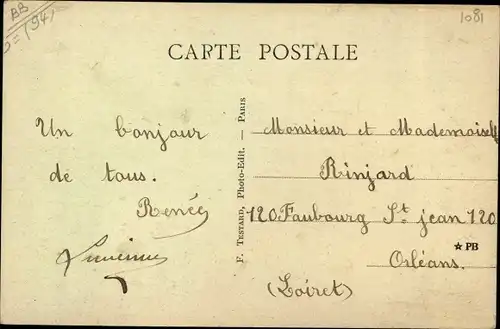 BB
(94)
1081
CARTE POSTALE
Un bonjour
de tous.
Renée
F. TESTARD, Photo-Edit. — PARIS
Monsieur et Mademoiselle
Rinjard
120 Faubourg St jean 120
☆PB
Orléans.
(Loiret)